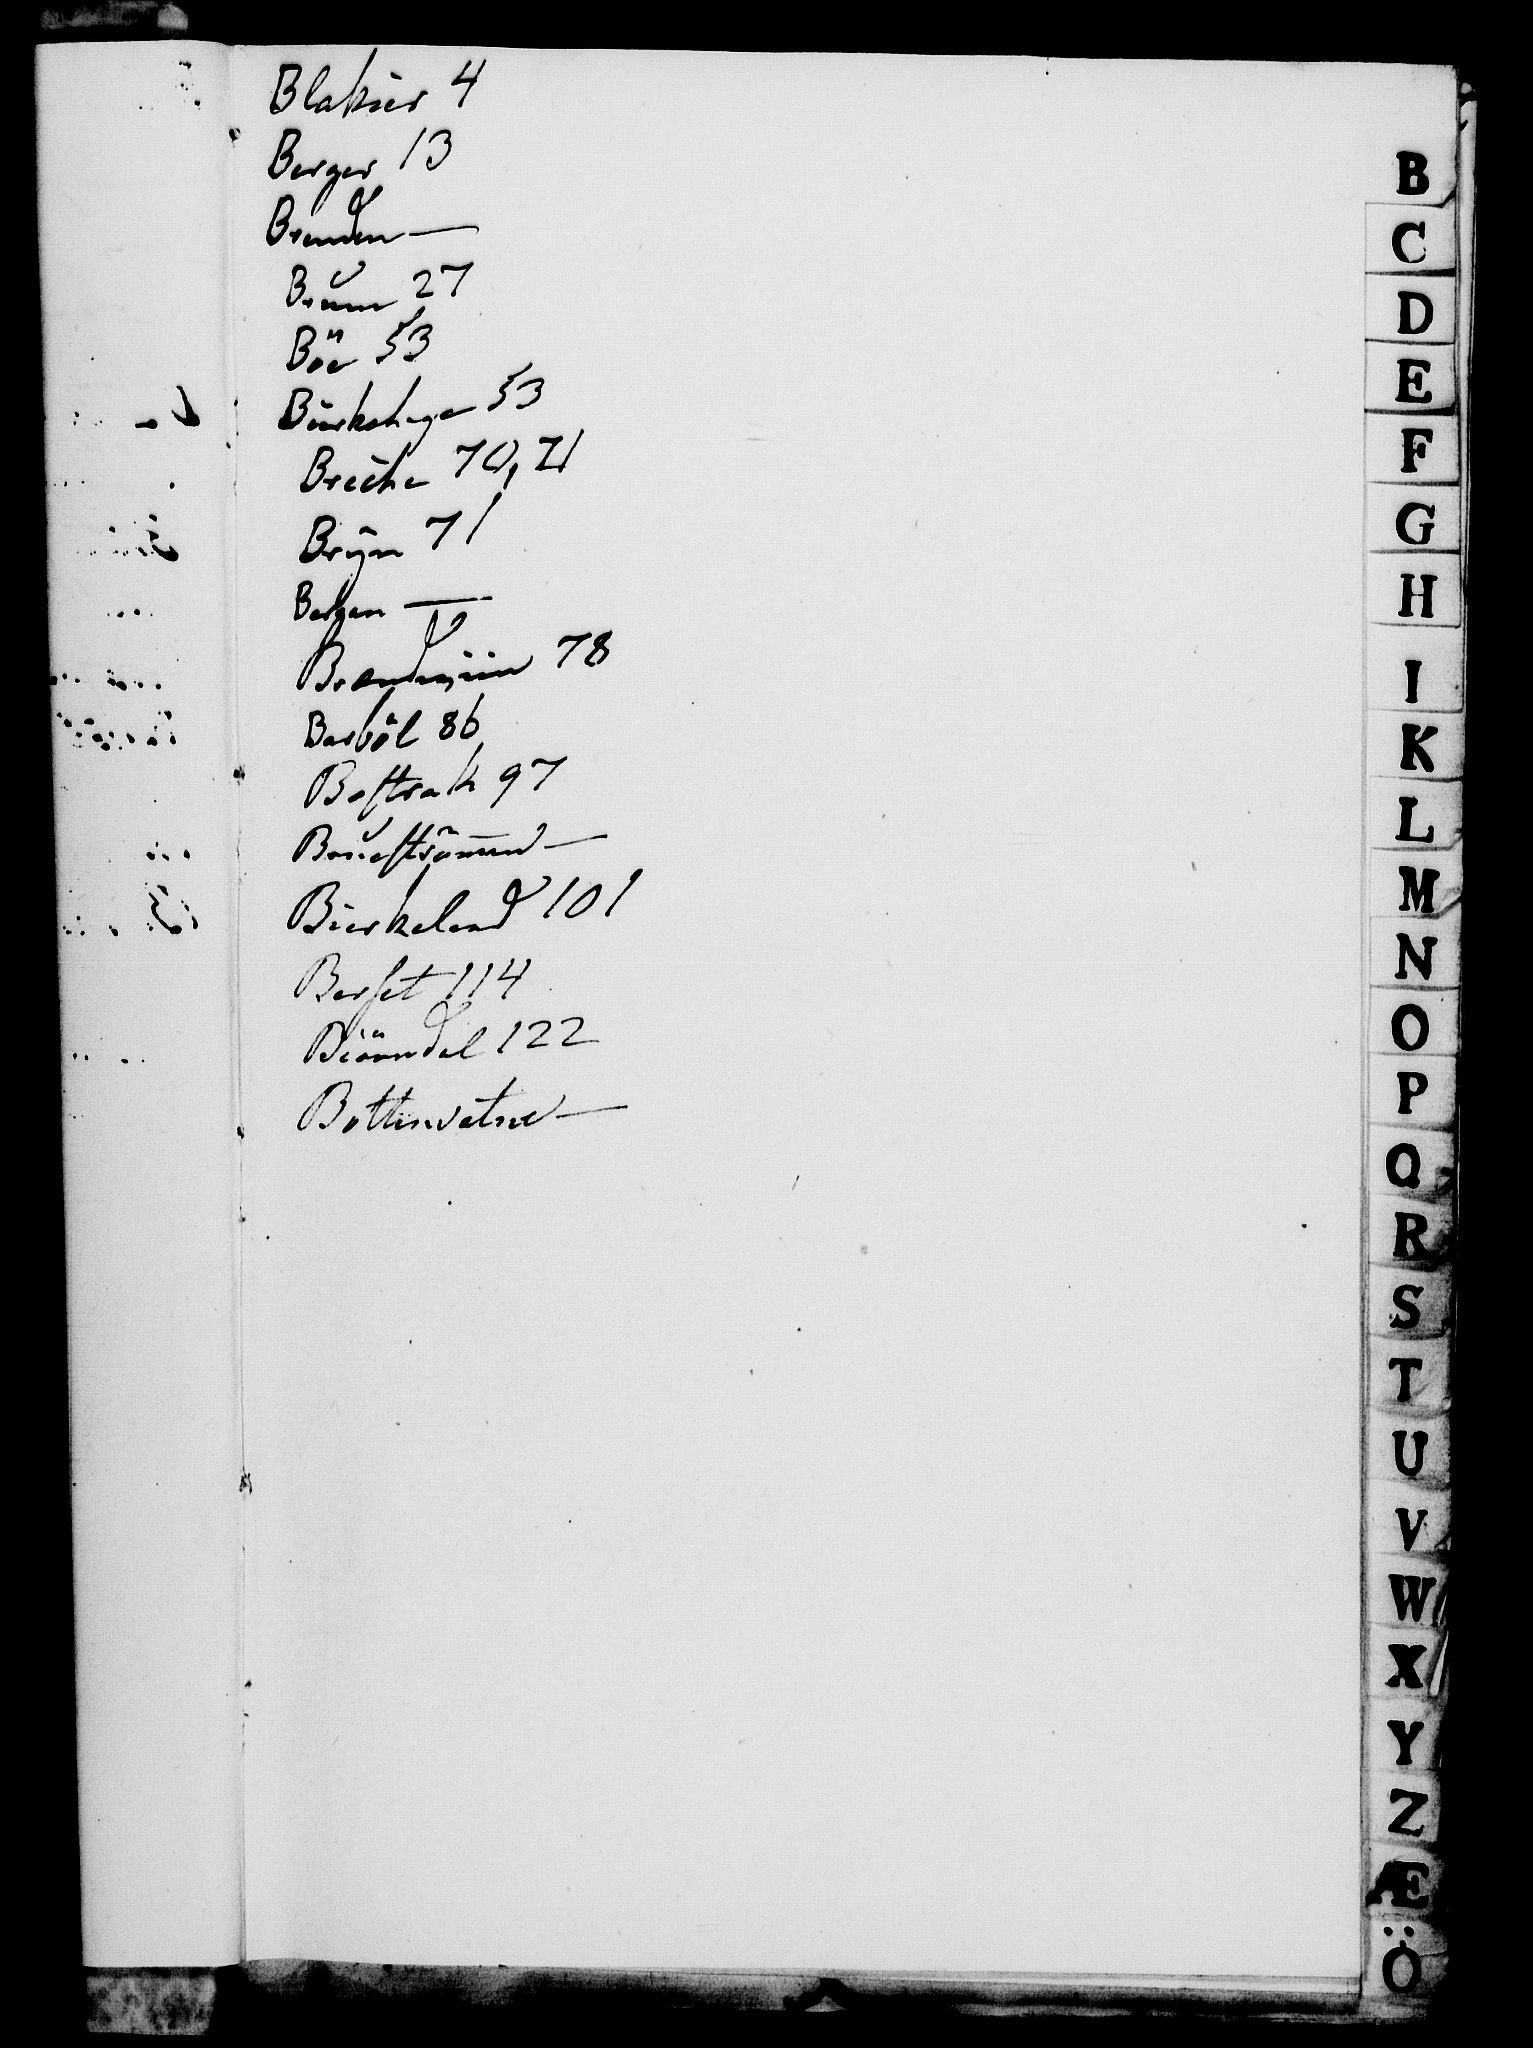 Blakier 4
Berger 13
Brenden —
Bruun 27
Böe 53
Bierkehagen 53
Breche 70, 71
Bryn 71
Bergen —
Brandmyiin 78
Barböl 86
Bostrak 97
Bierkeland 101
Berset 114
Biörndal 122
Bottenvatne —
B
C
D
E
F
G
H
I
K
L
M
N
O
P
Q
R
S
T
U
V
W
X
Y
Z
Æ
Ö